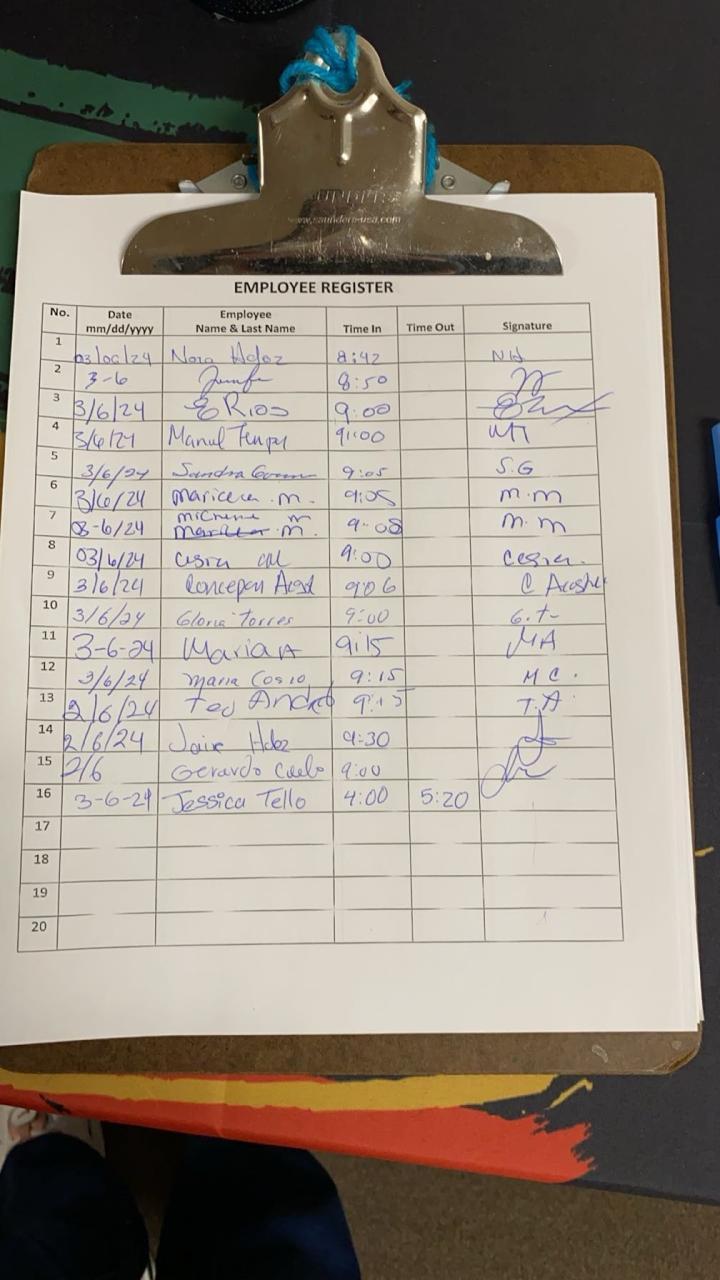 www.saunders-usa.com
EMPLOYEE REGISTER
No. Date mm/dd/yyyy Employee Name & Last Name Time In Time Out Signature
1 03/06/24 Nora Hdez 8:42 NH
2 3-6 8:50
3 3/6/24 E Rios 9:00
4 3/6/24 Manul 9:00
5 3/6/24 Sandra 9:05 S.G
6 3/6/24 maricela .m. 9:05 m.m
7 03-6/24 m 9-08 m.m
8 03/6/24 cesia 9:00 cesia.
9 3/6/24 9:06 C
10 3/6/24 Gloria Torres 9:00 G.t-
11 3-6-24 Maria A 9:15 MA
12 3/6/24 maria Cosio 9:15 M C.
13 2/6/24 Ted 9:15 T.A
14 2/6/24 Hdez 9:30
15 2/6 Gerardo 9:00
16 3-6-24 Jessica Tello 4:00 5:20
17
18
19
20